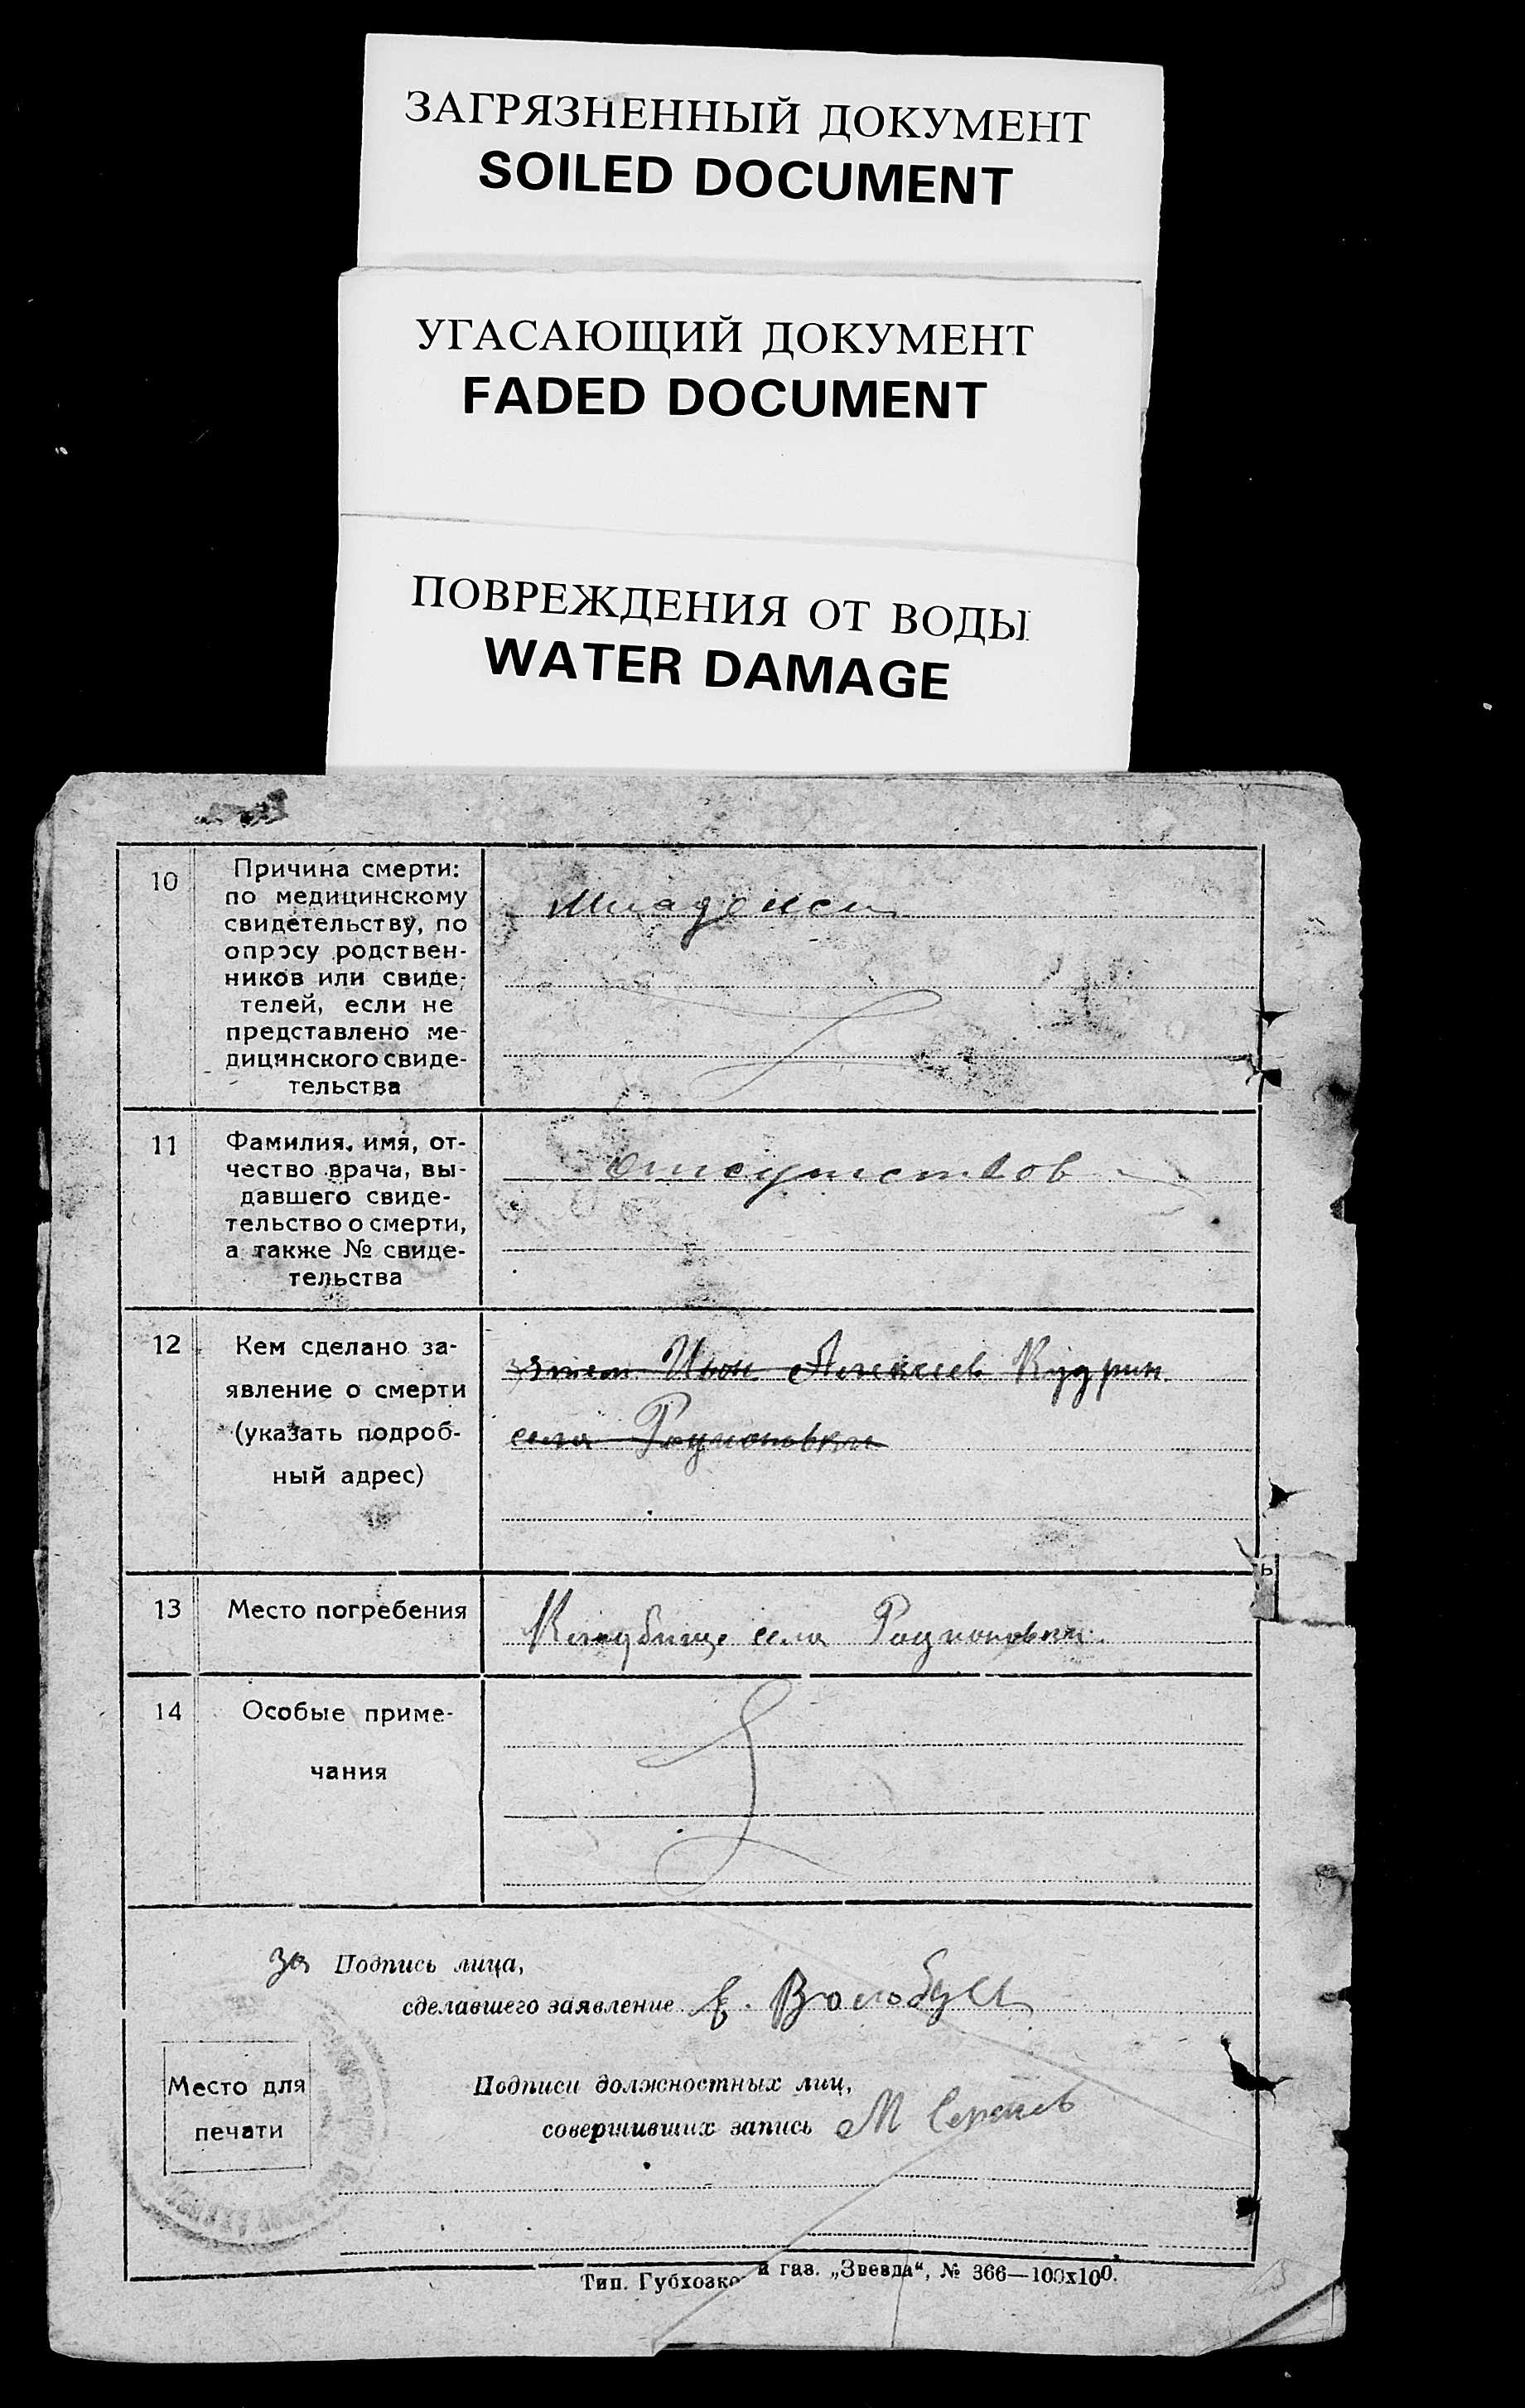 ЗАГРЯЗНЕННЫЙ ДОКУМЕНТ
SOILED DOCUMENT
УГАСАЮЩИЙ ДОКУМЕНТ
FADED DOCUMENT
ПОВРЕЖДЕНИЯ ОТ ВОДЫ
WATER DAMAGE
10
Причина смерти:
по медицинскому
свидетельству, по
опросу родствен-
ников или свиде-
телей, если не
представлено ме-
дицинского свиде-
тельства
11
Фамилия, имя, от-
чество врача, вы-
давшего свиде-
тельство о смерти,
а также № свиде-
тельства
отсутствов
12
Кем сделано за-
явление о смерти
(указать подроб-
ный адрес)
Кудрин
села
13
Место погребения
села
14
Особые приме-
чания
за Подпись лица,
сделавшего заявление
Место для
печати
Подписи должностных лиц,
совершивших запись М
Тип. Губхозко и газ. „Звезда“, № 366—100х100.